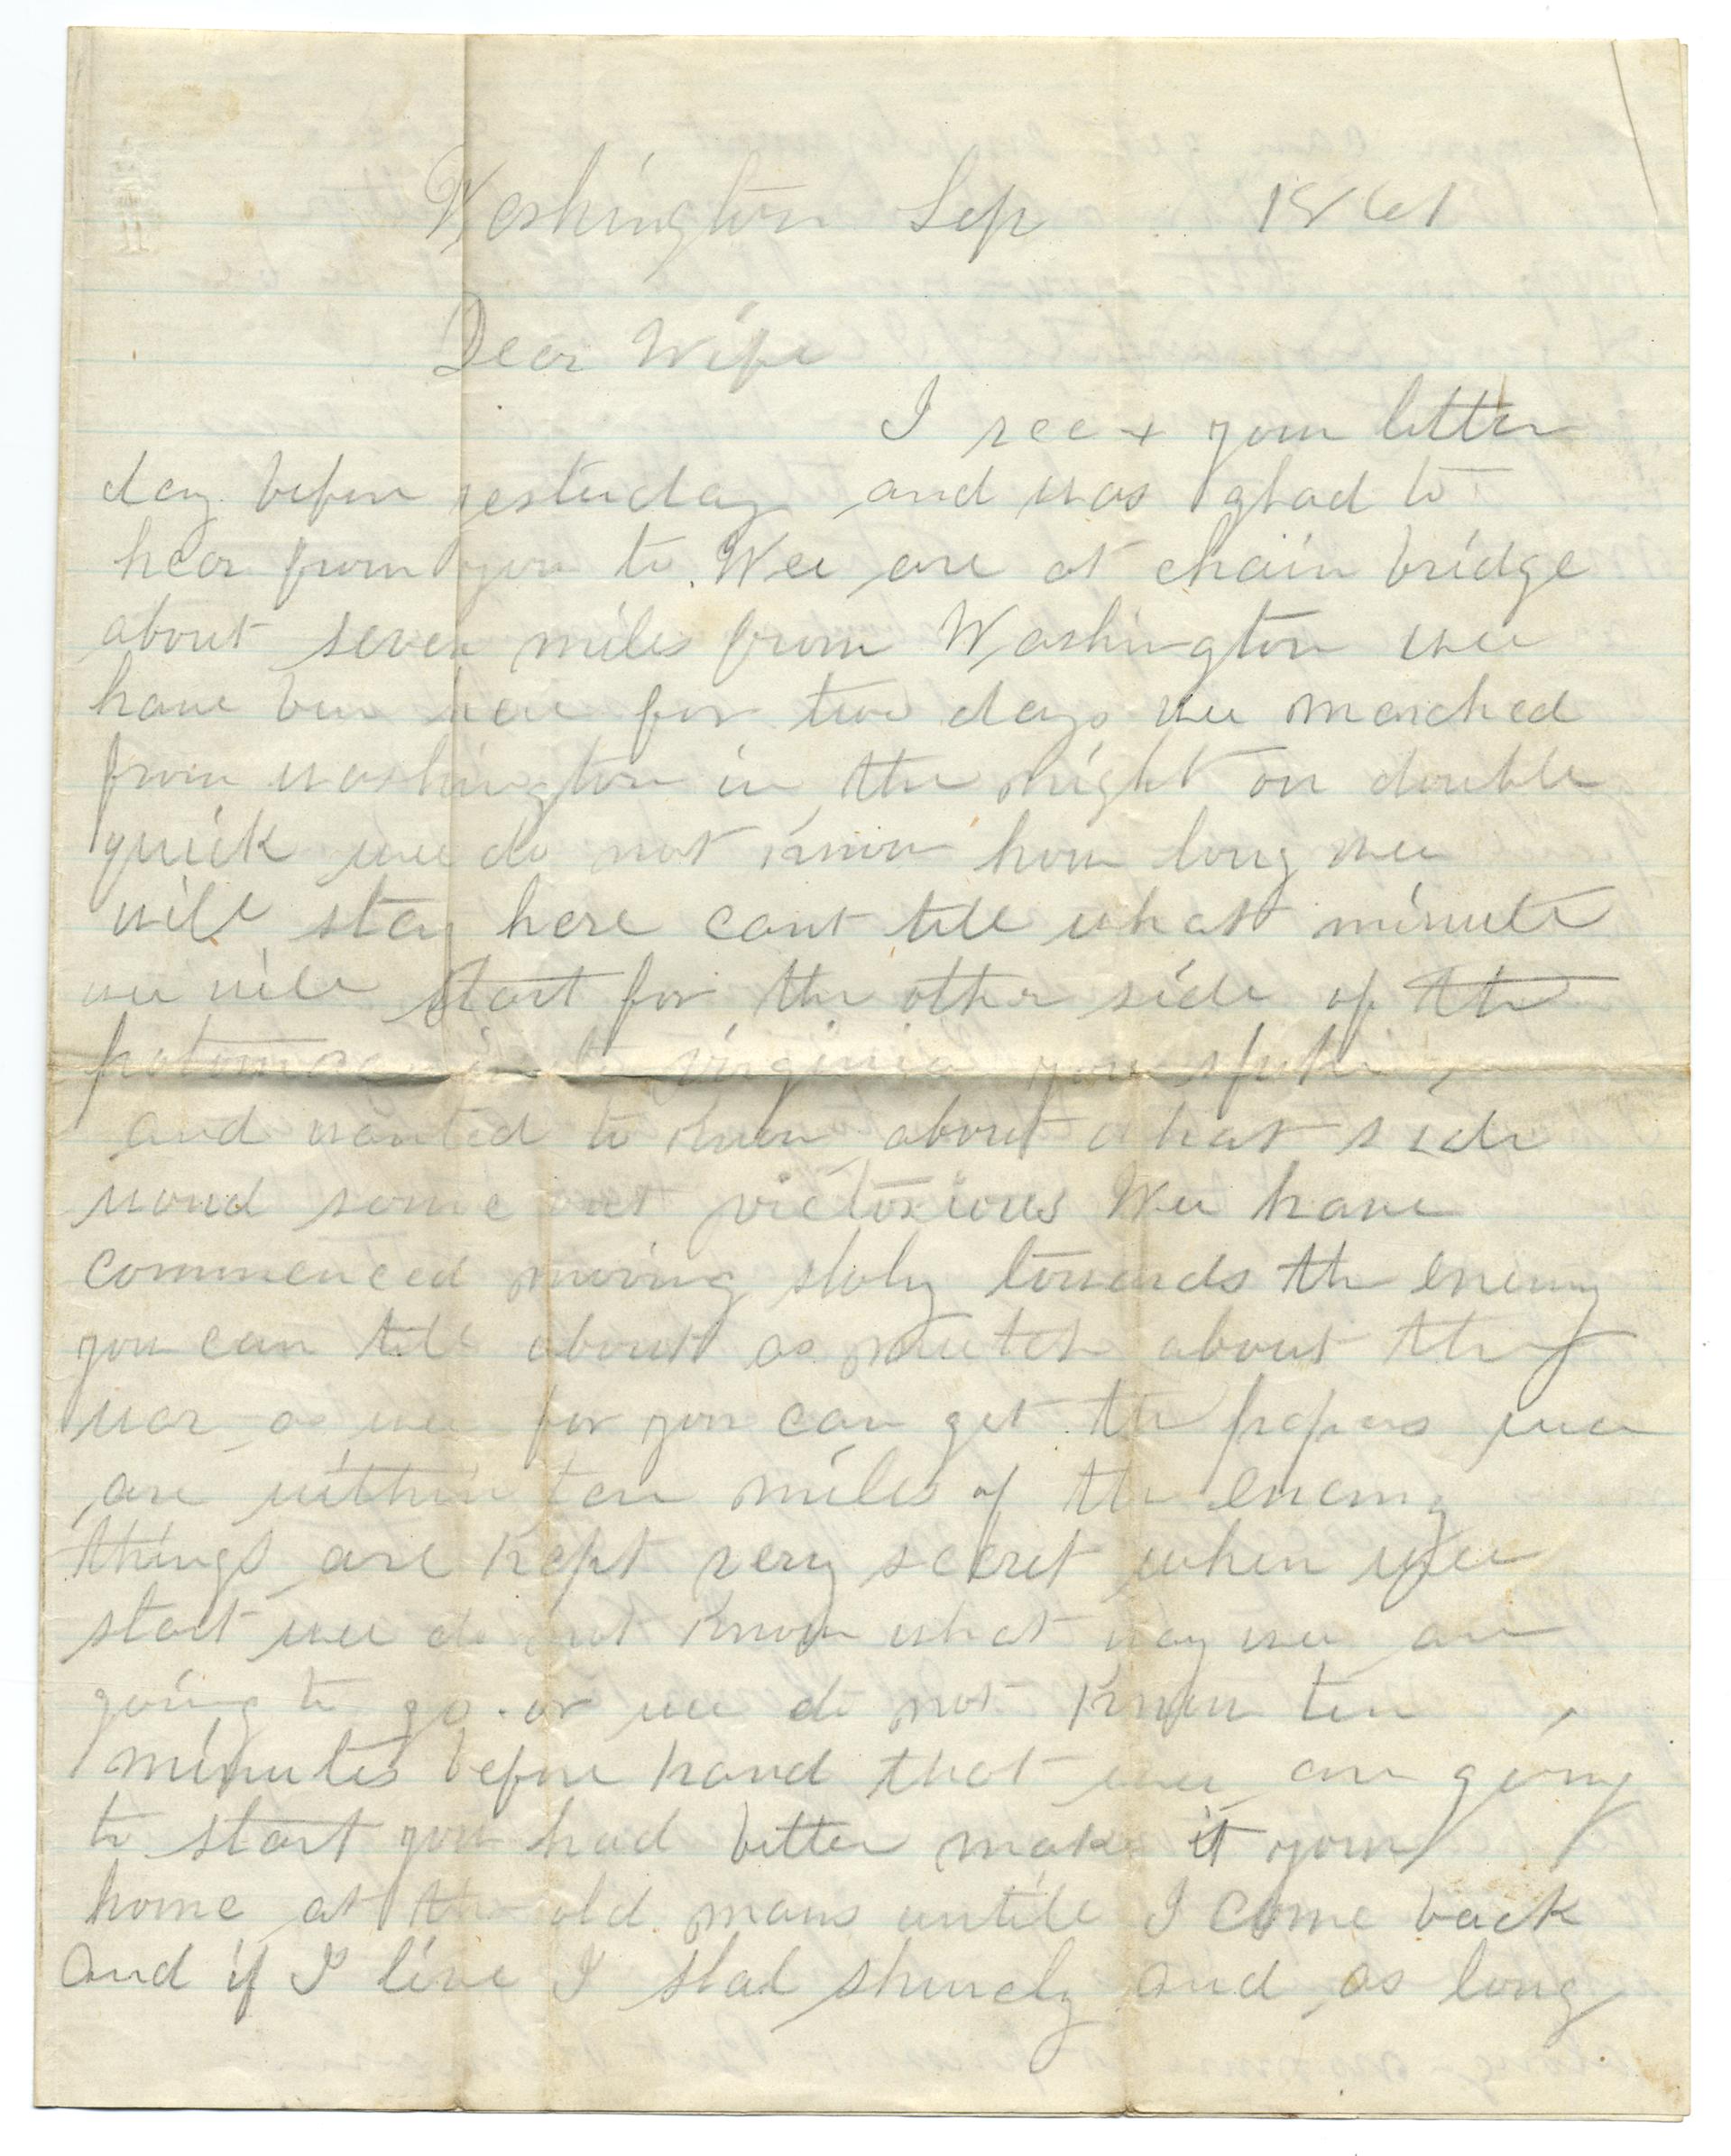 Washington Sep 1861
Dear Wife
I rec+ your letter
day before yesterday and was glad to
hear from you to. Wee are at chain bridge
about seven miles from Washington wee
have bee here for two days wee marched
from washington in the night on double
quick wee do not know how long wee
will stay here cant tell what minute
wee will start for the other side of the
potomac in to virginia you spoke
and wanted to know about what side
woud come out victorious Wee have
commenced moving sloly towards the enemy
you can tell about as mutch about the
war as wee for you can get the papers wee
are within ten miles of the enemy
things are kept very secret when wee
start wee do not know what way wee are
going to go. or wee do not know ten
minutes before hand that wee are going
to start you had better make it your
home at the old mans untill I come back
and if I live I shal shurely and as long